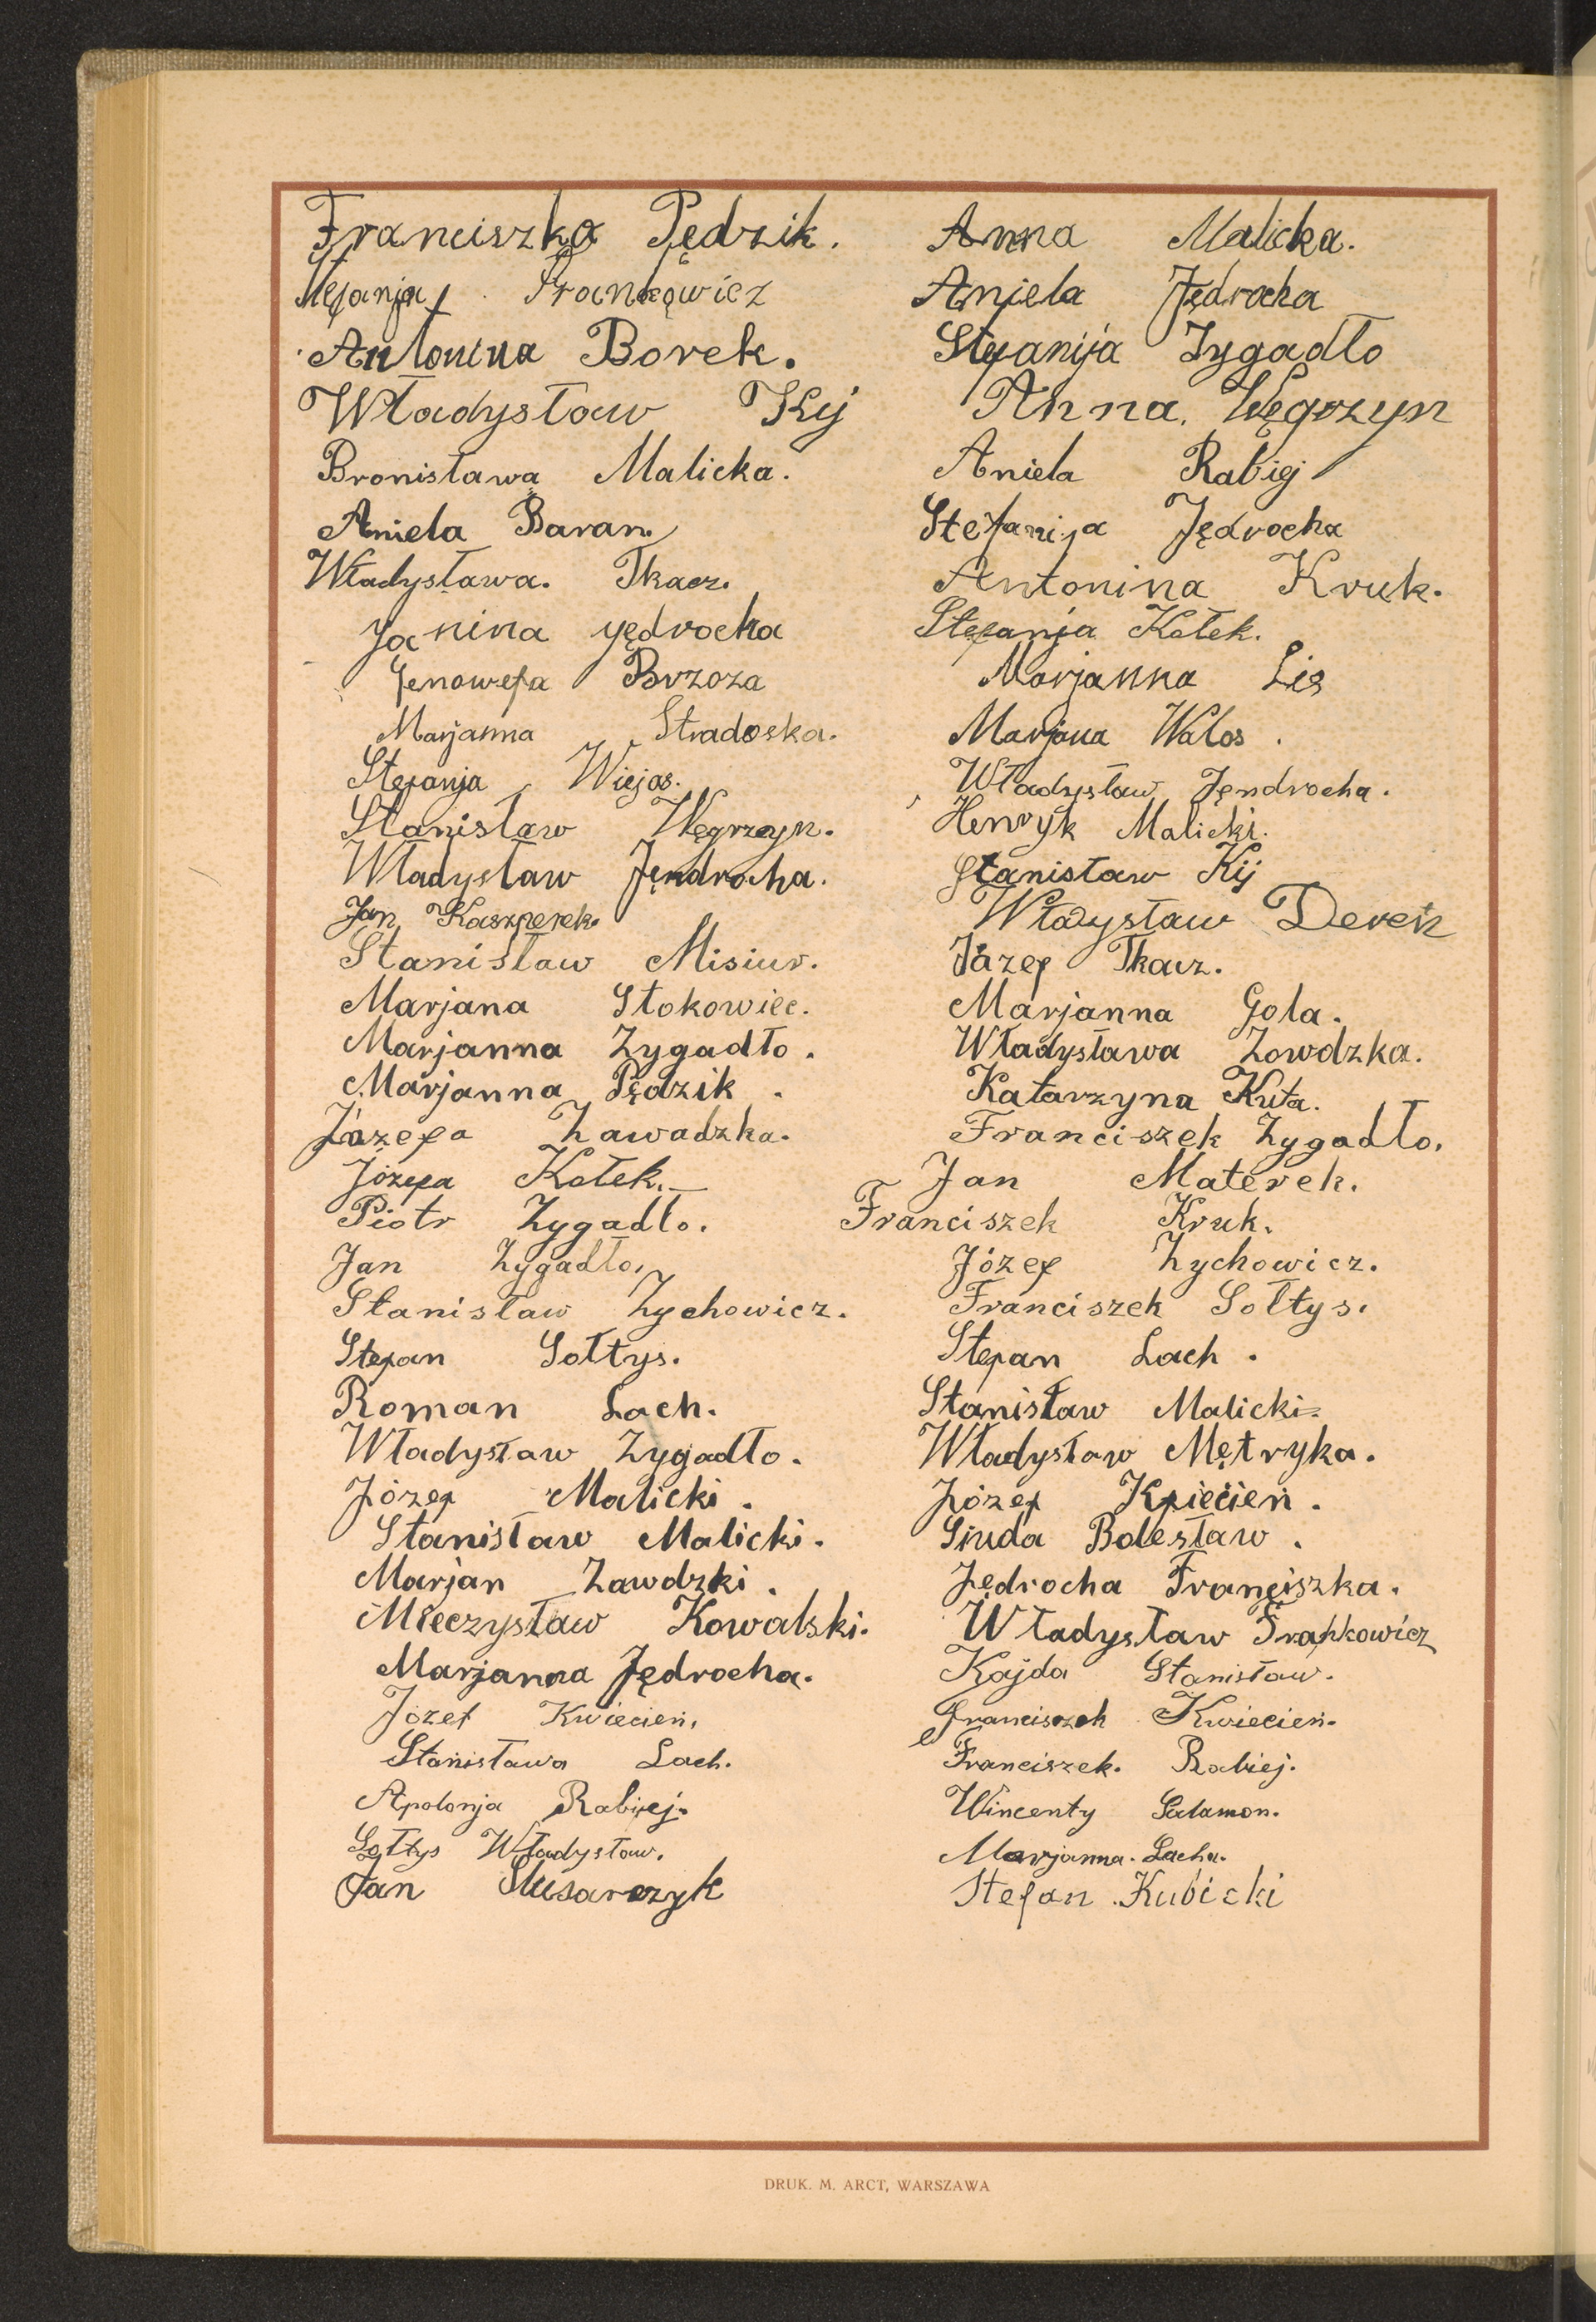 Franciszka Pędzik.
Stefanja Frankowicz
Antonina Borek.
Władysław Kij
Bronisława Malicka.
Aniela Baran.
Władysława. Tkacz.
Janina Jędrocha
Genowefa Brzoza
Marjanna Stradoska.
Stefanja Wiejas.
Stanisław Węgrzyn.
Władysław Jędrocha.
Jan Kasxperek.
Stanisław Misiur.
Marjana Stokowiec.
Marjanna Zygadło.
Marjanna Pędzik.
Józefa Zawadzka.
Józefa Kołek.
Piotr Zygadło.
Jan Zygadło.
Stanisław Zychowicz.
Stefan Sołtys.
Roman Lach.
Władysław Zygadło.
Józef Malicki.
Stanisław Malicki.
Marjan Zawdzki.
Mieczysław Kowalski.
Marjanna Jędrocha.
Józef Kwiecień.
Stanisława Lach.
Apolonja Rabiej.
Sołtys Władysław.
Jan Ślusarczyk
Anna Malicka.
Aniela Jędrocha
Stefanija Zygadło
Anna Węgrzyn
Aniela Rabiej
Stefanija Jędrocha
Antonina Kruk.
Stefanja Kołek.
Marjanna Lis
Marjana Walos.
Władysław Jendrocha.
Henryk Malicki.
Stanisław Kij
Władysław Dereń
Józef Tkacz.
Marjanna Gola.
Władysława Zowdzka.
Katarzyna Kuta.
Franciszek Zygadło.
Jan Materek.
Franciszek Kruk.
Józef Zychowicz.
Franciszek Sołtys.
Stefan Lach.
Stanisław Malicki.
Władysław Mętryka.
Józef Kwiecień.
Siuda Bolesław.
Jędrocha Franciszka.
Władysław Frankowicz
Kajda Stanisław.
Franciszek Kwiecień.
Franciszek. Rabiej.
Wincenty Salamon.
Marjanna. Lacha.
Stefan Kubicki
DRUK. M. ARCT, WARSZAWA